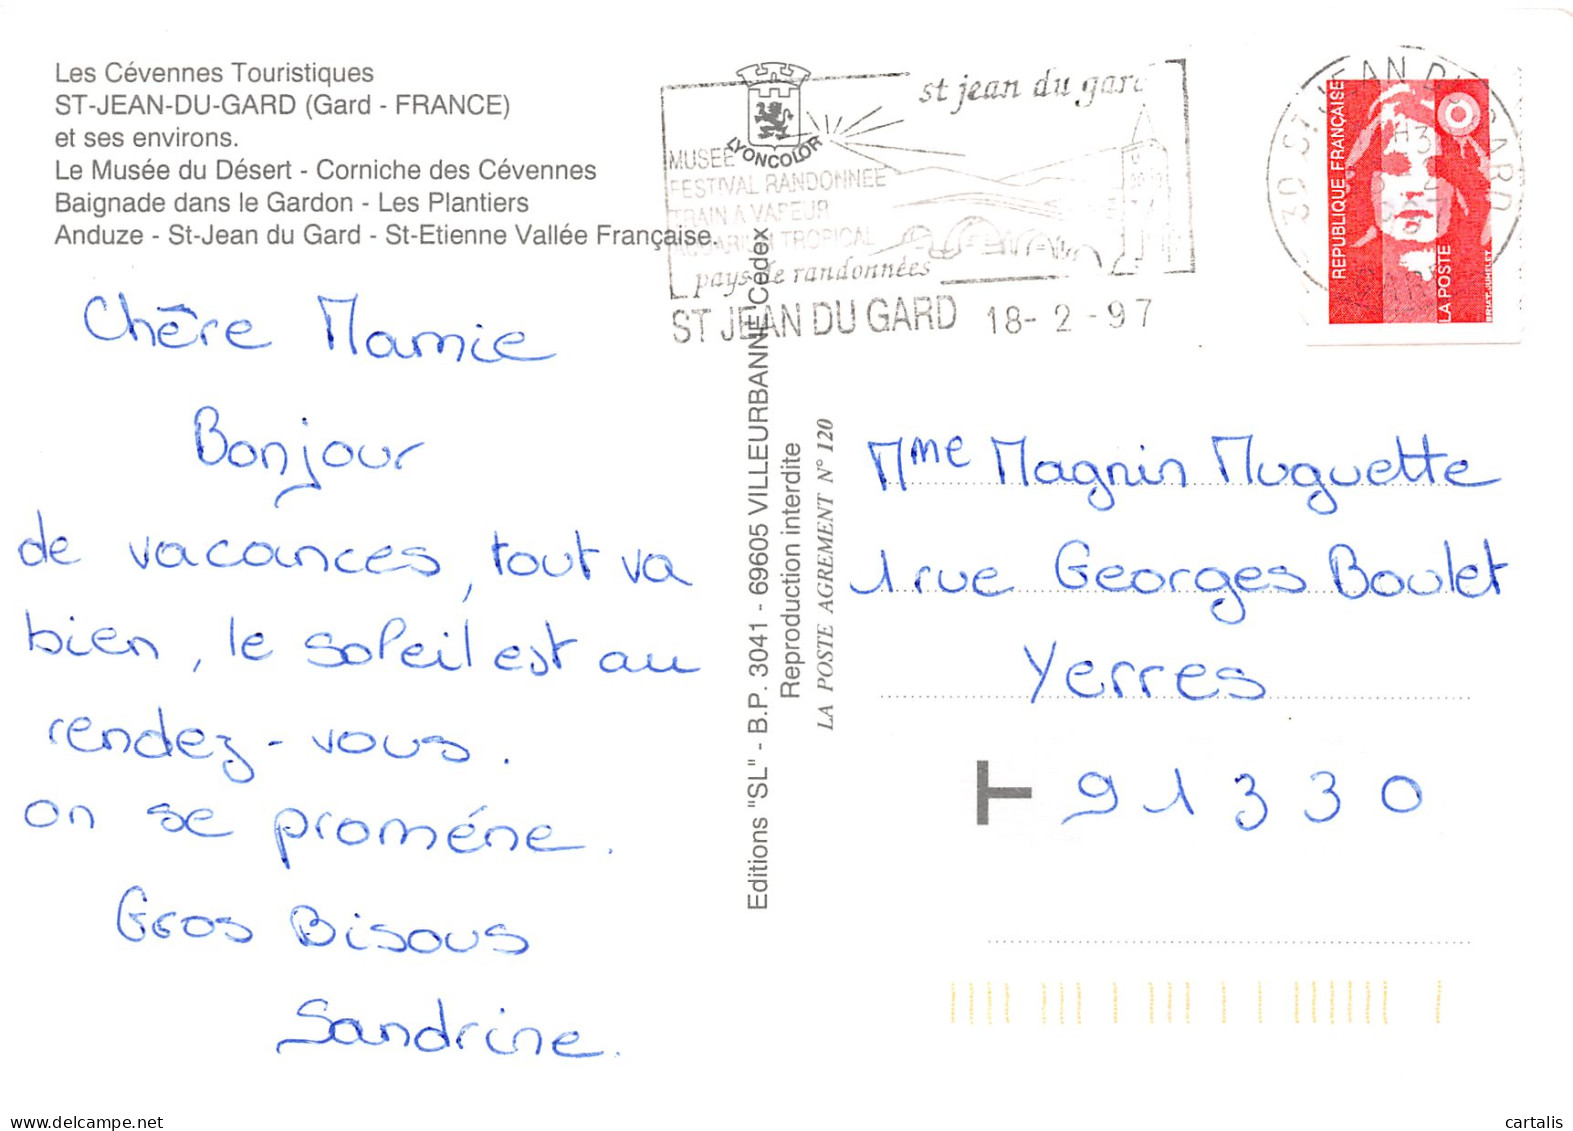 Les Cévennes Touristiques
ST-JEAN-DU-GARD (Gard - FRANCE)
et ses environs.
Le Musée du Désert - Corniche des Cévennes
Baignade dans le Gardon - Les Plantiers
Anduze - St-Jean du Gard - St-Etienne Vallée Française.
Chère Mamie
Bonjour
de vacances, tout va
bien, le soleil est au
rendez-vous.
on se proméne.
Gros Bisous
Sandrine.
LYONCOLOR
st jean du gard
MUSEE
FESTIVAL RANDONNEE
TRAIN A VAPEUR
AQUARIUM TROPICAL
pays de randonnées
ST JEAN DU GARD 18-2-97
Editions "SL" - B.P. 3041 - 69605 VILLEURBANNE Cedex
Reproduction interdite
LA POSTE AGREMENT N° 120
30 ST JEAN DU GARD
REPUBLIQUE FRANÇAISE
LA POSTE
BRIAT-JUMELET
Mme Magnin Muguette
1 rue Georges Boulet
Yerres
T 91330
delcampe.net
cartalis